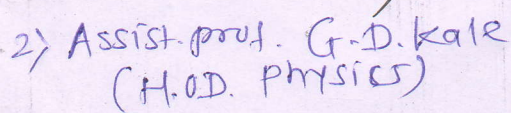 2) Assist. prof. G.D. kale
(H.O.D. Physics)